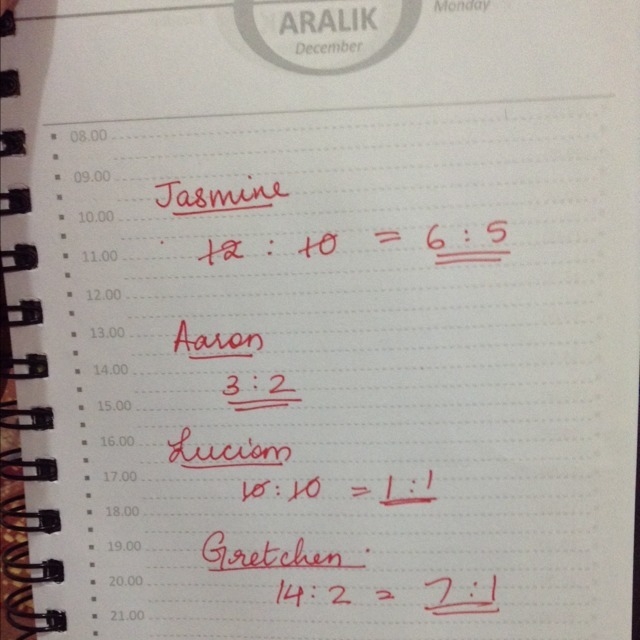 Monday
ARALIK
December
08.00
09.00
Jasmine
10.00
12 : 10 = 6 : 5
11.00
12.00
13.00
Aaron
14.00
3 : 2
15.00
16.00
Luciom
17.00
10 : 10 = 1 : 1
18.00
19.00
Gretchen
20.00
14 : 2 = 7 : 1
21.00